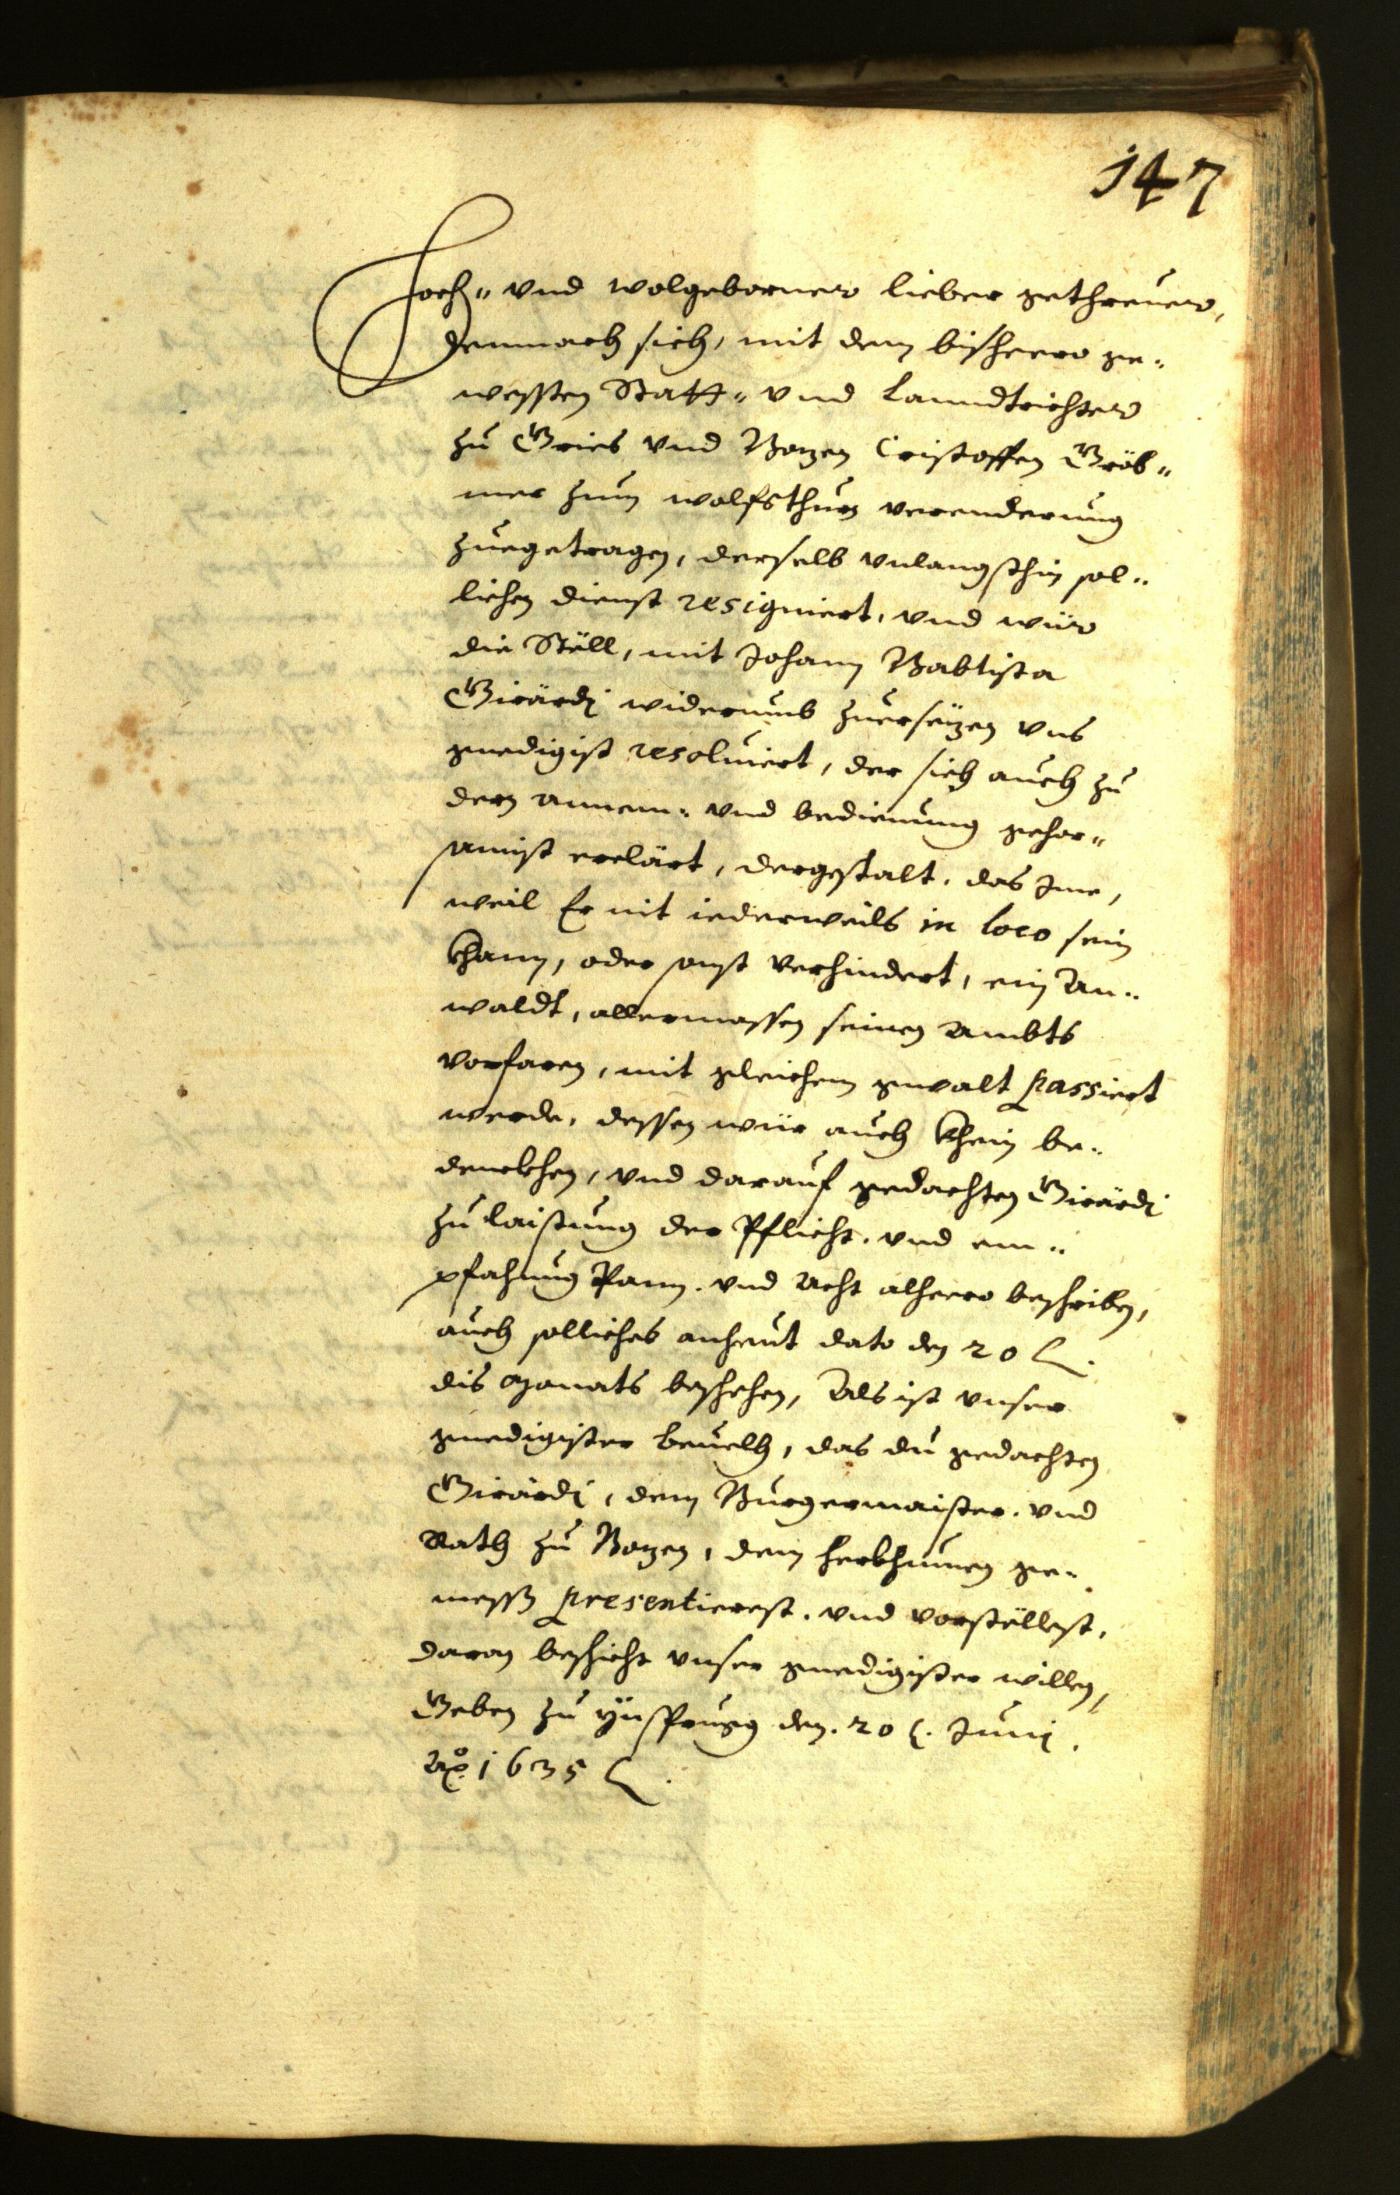 147
Hoch- vnd wolgeborner lieber gethreuer,
demnach sich, mit dem bishero ge-
weßten Statt- vnd Lanndtrichter
zu Gries vnd Bozen Cristoffen Gröb-
mer zum wolfsthurn verenderung
zuegetragen, derselb vnlangsthin sol-
lichen dienst resigniert, vnd wür
die Stöll, mit Johann Babtista
Girärdj widerumb zuersezen vns
gnedigist resoluiert, der sich auch zu
dern annem- vnd bedienung gehor-
samist erclärt, dergestalt, das Ime,
weil Er nit iederweils in loco sein
khann, oder sonst verhindert, ein An-
waldt, allermassen seinen Ambts
vorfaren, mit gleichem gwalt passiert
werde, dessen wür auch khein be-
denckhen, vnd darauf gedachten Girärdj
zu laistung der Pflicht, vnd em-
pfahung Pann- vnd Acht alhero beschriben,
auch solliches anheut dato den 20
dis Monats beschehen, Als ist vnser
gnedigister beuelch, das du gedachten
Girärdj, dem Burgermaister- vnd
Rath zu Bozen, dem herkhumen ge-
meß presentierest, vnd vorstöllest,
daran beschicht vnser gnedigister willen,
Geben zu Ynsprugg den. 20. Junj.
Ao 1635